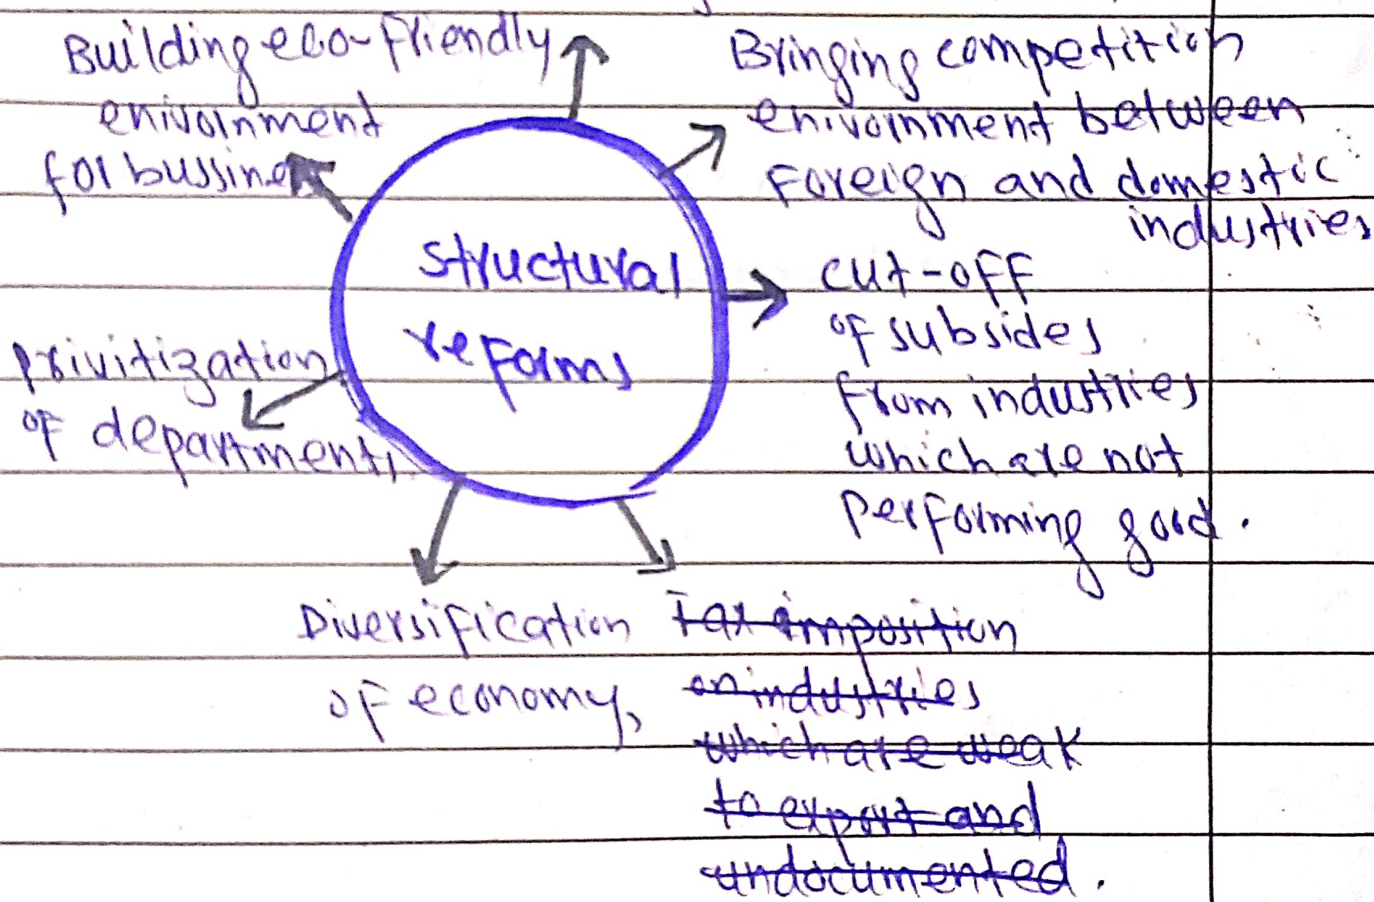 Building eco-friendly
enivornment
for bussines
Bringing competition
enivornment between
Foreign and domestic
industries
structural
reforms
cut-off
of subsides
from industries
which are not
performing good.
privitization
of departments
Diversification
of economy,
Tax imposition
on industries
which are weak
to export and
undocumented.